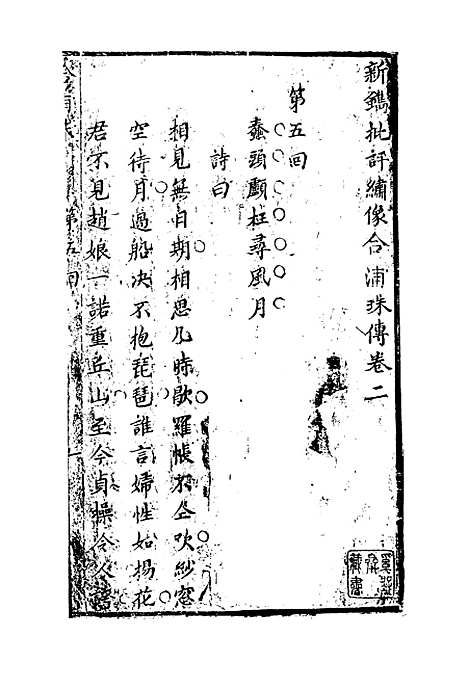 新鐫批評繡像合浦珠傳卷二
第五回
蠢頭顱枉尋風月
詩曰
相見無自期相思几時歇羅帳不空吹紗窓
空待月過船决不抱琵琶誰言婦性如揚花
君不見趙娘一諾重丘山至今貞操令人
第五回